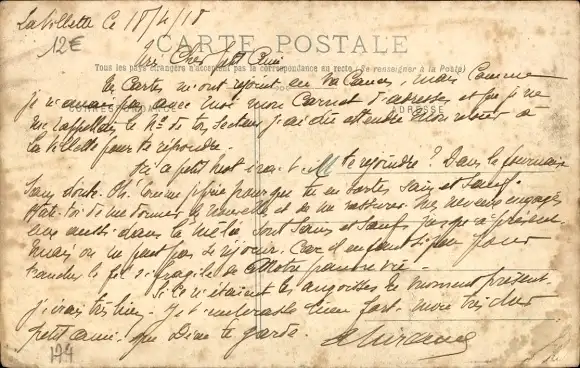 La Villette Ce 18/4/18
12€
CARTE POSTALE
Mon Cher petit Ami
Tous les pays étrangers n'acceptent pas la correspondance au recto (Se renseigner à la Poste)
Ta Carte m'ont rejoint en vacances, mais Comme
je n'avais pas avec moi mon Carnet d'adresses et que je ne
CORRESPONDANCE
ADRESSE
me rappellais le No de ton secteur, j'ai dû attendre mon retour à
la Villette pour te répondre.
Où a petit mot te rejoindre? Dans la fournaise
sans doute. Oh! Comme je prie pour que tu en sortes Sain et Sauf.
Hâte-toi de me donner de nouvelles et de me rassurer. Mes neveux engagés
eux aussi dans la mêlée sont Sains et Saufs jusqu'à présent
Mais on ne peut pas se réjouir. Car il en faut si peu pour
trancher le fil si fragile de notre pauvre vie.
Si ce n'étaient les angoisses du moment présent
j'irais très bien. Je t'embrasse bien fort mon très cher
petit ami, que Dieu te garde.
174